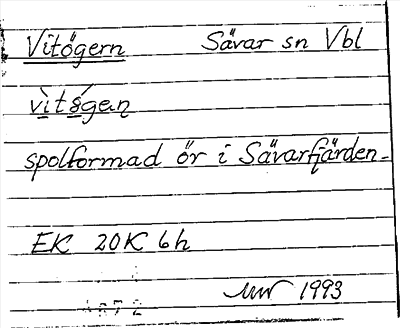 Vitögern Sävar sn Vbl
vìtǿgen
spolformad ör i Sävarfjärden.
EK 20K 6h
1993